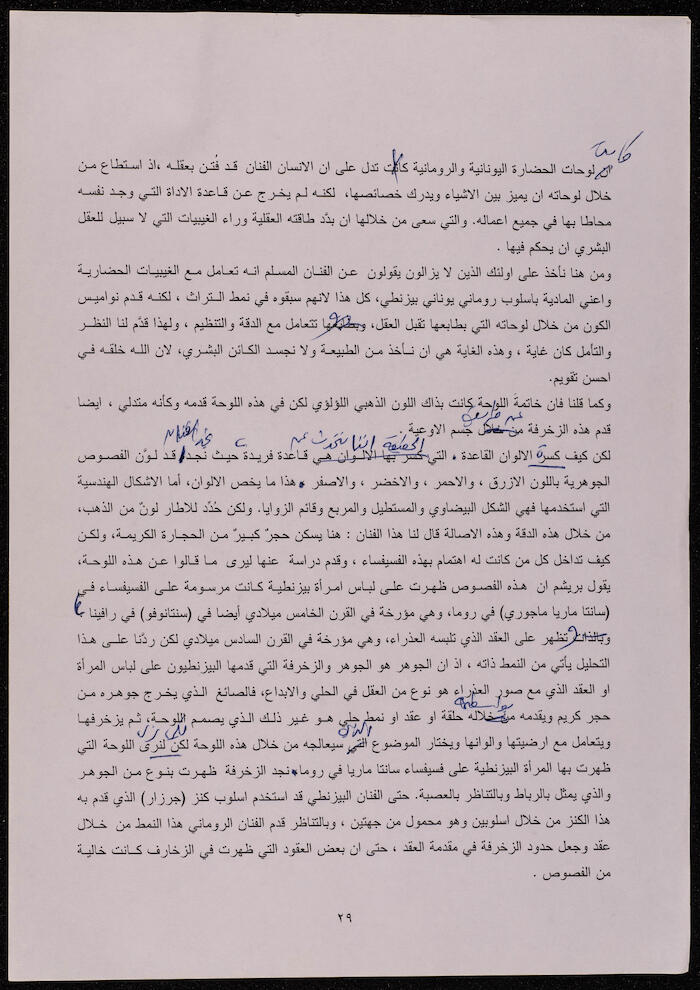 كانت
ان لوحات الحضارة اليونانية والرومانية كانت تدل على ان الانسان الفنان قد فُتن بعقله ،اذ استطاع من
خلال لوحاته ان يميز بين الاشياء ويدرك خصائصها، لكنه لم يخرج عن قاعدة الاداة التي وجد نفسه
محاطا بها في جميع اعماله. والتي سعى من خلالها ان بدّد طاقته العقلية وراء الغيبيات التي لا سبيل للعقل
البشري ان يحكم فيها .
ومن هنا نأخذ على اولئك الذين لا يزالون يقولون عن الفنان المسلم انه تعامل مع الغيبيات الحضارية
واعني المادية باسلوب روماني يوناني بيزنطي، كل هذا لانهم سبقوه في نمط التراث ، لكنه قدم نواميس
الكون من خلال لوحاته التي بطابعها تقبل العقل، وبطابعها تتعامل مع الدقة والتنظيم ، ولهذا قدّم لنا النظر
والتأمل كان غاية ، وهذه الغاية هي ان نأخذ من الطبيعة ولا نجسد الكائن البشري، لان الله خلقه في
احسن تقويم.
وكما قلنا فان خاتمة اللوحة كانت بذاك اللون الذهبي اللؤلؤي لكن في هذه اللوحة قدمه وكأنه متدلي ، ايضا
قدم هذه الزخرفة من خلال جسم الاوعية
الحقيقة اننا نتحدث عن
لكن كيف كسرة الالوان القاعدة ، التي كسر بها الالوان هي قاعدة فريدة حيث نجد قد لوّن الفصوص
الجوهرية باللون الازرق ، والاحمر ، والاخضر ، والاصفر . هذا ما يخص الالوان، أما الاشكال الهندسية
التي استخدمها فهي الشكل البيضاوي والمستطيل والمربع وقائم الزوايا. ولكن حُدّد للاطار لونٌ من الذهب،
من خلال هذه الدقة وهذه الاصالة قال لنا هذا الفنان : هنا يسكن حجرٌ كبيرٌ من الحجارة الكريمة، ولكن
كيف تداخل كل من كانت له اهتمام بهذه الفسيفساء ، وقدم دراسة عنها ليرى ما قالوا عن هذه اللوحة،
يقول بريشم ان هذه الفصوص ظهرت على لباس امرأة بيزنطية كانت مرسومة على الفسيفساء في
(سانتا ماريا ماجوري) في روما، وهي مؤرخة في القرن الخامس ميلادي أيضا في (سنتانوفو) في رافينا
وبالذات تظهر على العقد الذي تلبسه العذراء، وهي مؤرخة في القرن السادس ميلادي لكن ردّنا على هذا
التحليل يأتي من النمط ذاته ، اذ ان الجوهر هو الجوهر والزخرفة التي قدمها البيزنطيون على لباس المرأة
او العقد الذي مع صور العذراء هو نوع من العقل في الحلي والابداع، فالصائغ الذي يخرج جوهره من
بواسطة
حجر كريم ويقدمه من خلاله حلقة او عقد او نمط حلي هو غير ذلك الذي يصمم اللوحة، ثم يزخرفها
ويتعامل مع ارضيتها والوانها ويختار الموضوع التي سيعالجه من خلال هذه اللوحة لكن لنرى اللوحة التي
ظهرت بها المرأة البيزنطية على فسيفساء سانتا ماريا في روما، نجد الزخرفة ظهرت بنوع من الجوهر
والذي يمثل بالرباط وبالتناظر بالعصبة. حتى الفنان البيزنطي قد استخدم اسلوب كنز (جرزار) الذي قدم به
هذا الكنز من خلال اسلوبين وهو محمول من جهتين ، وبالتناظر قدم الفنان الروماني هذا النمط من خلال
عقد وجعل حدود الزخرفة في مقدمة العقد ، حتى ان بعض العقود التي ظهرت في الزخارف كانت خالية
من الفصوص .
٢٩